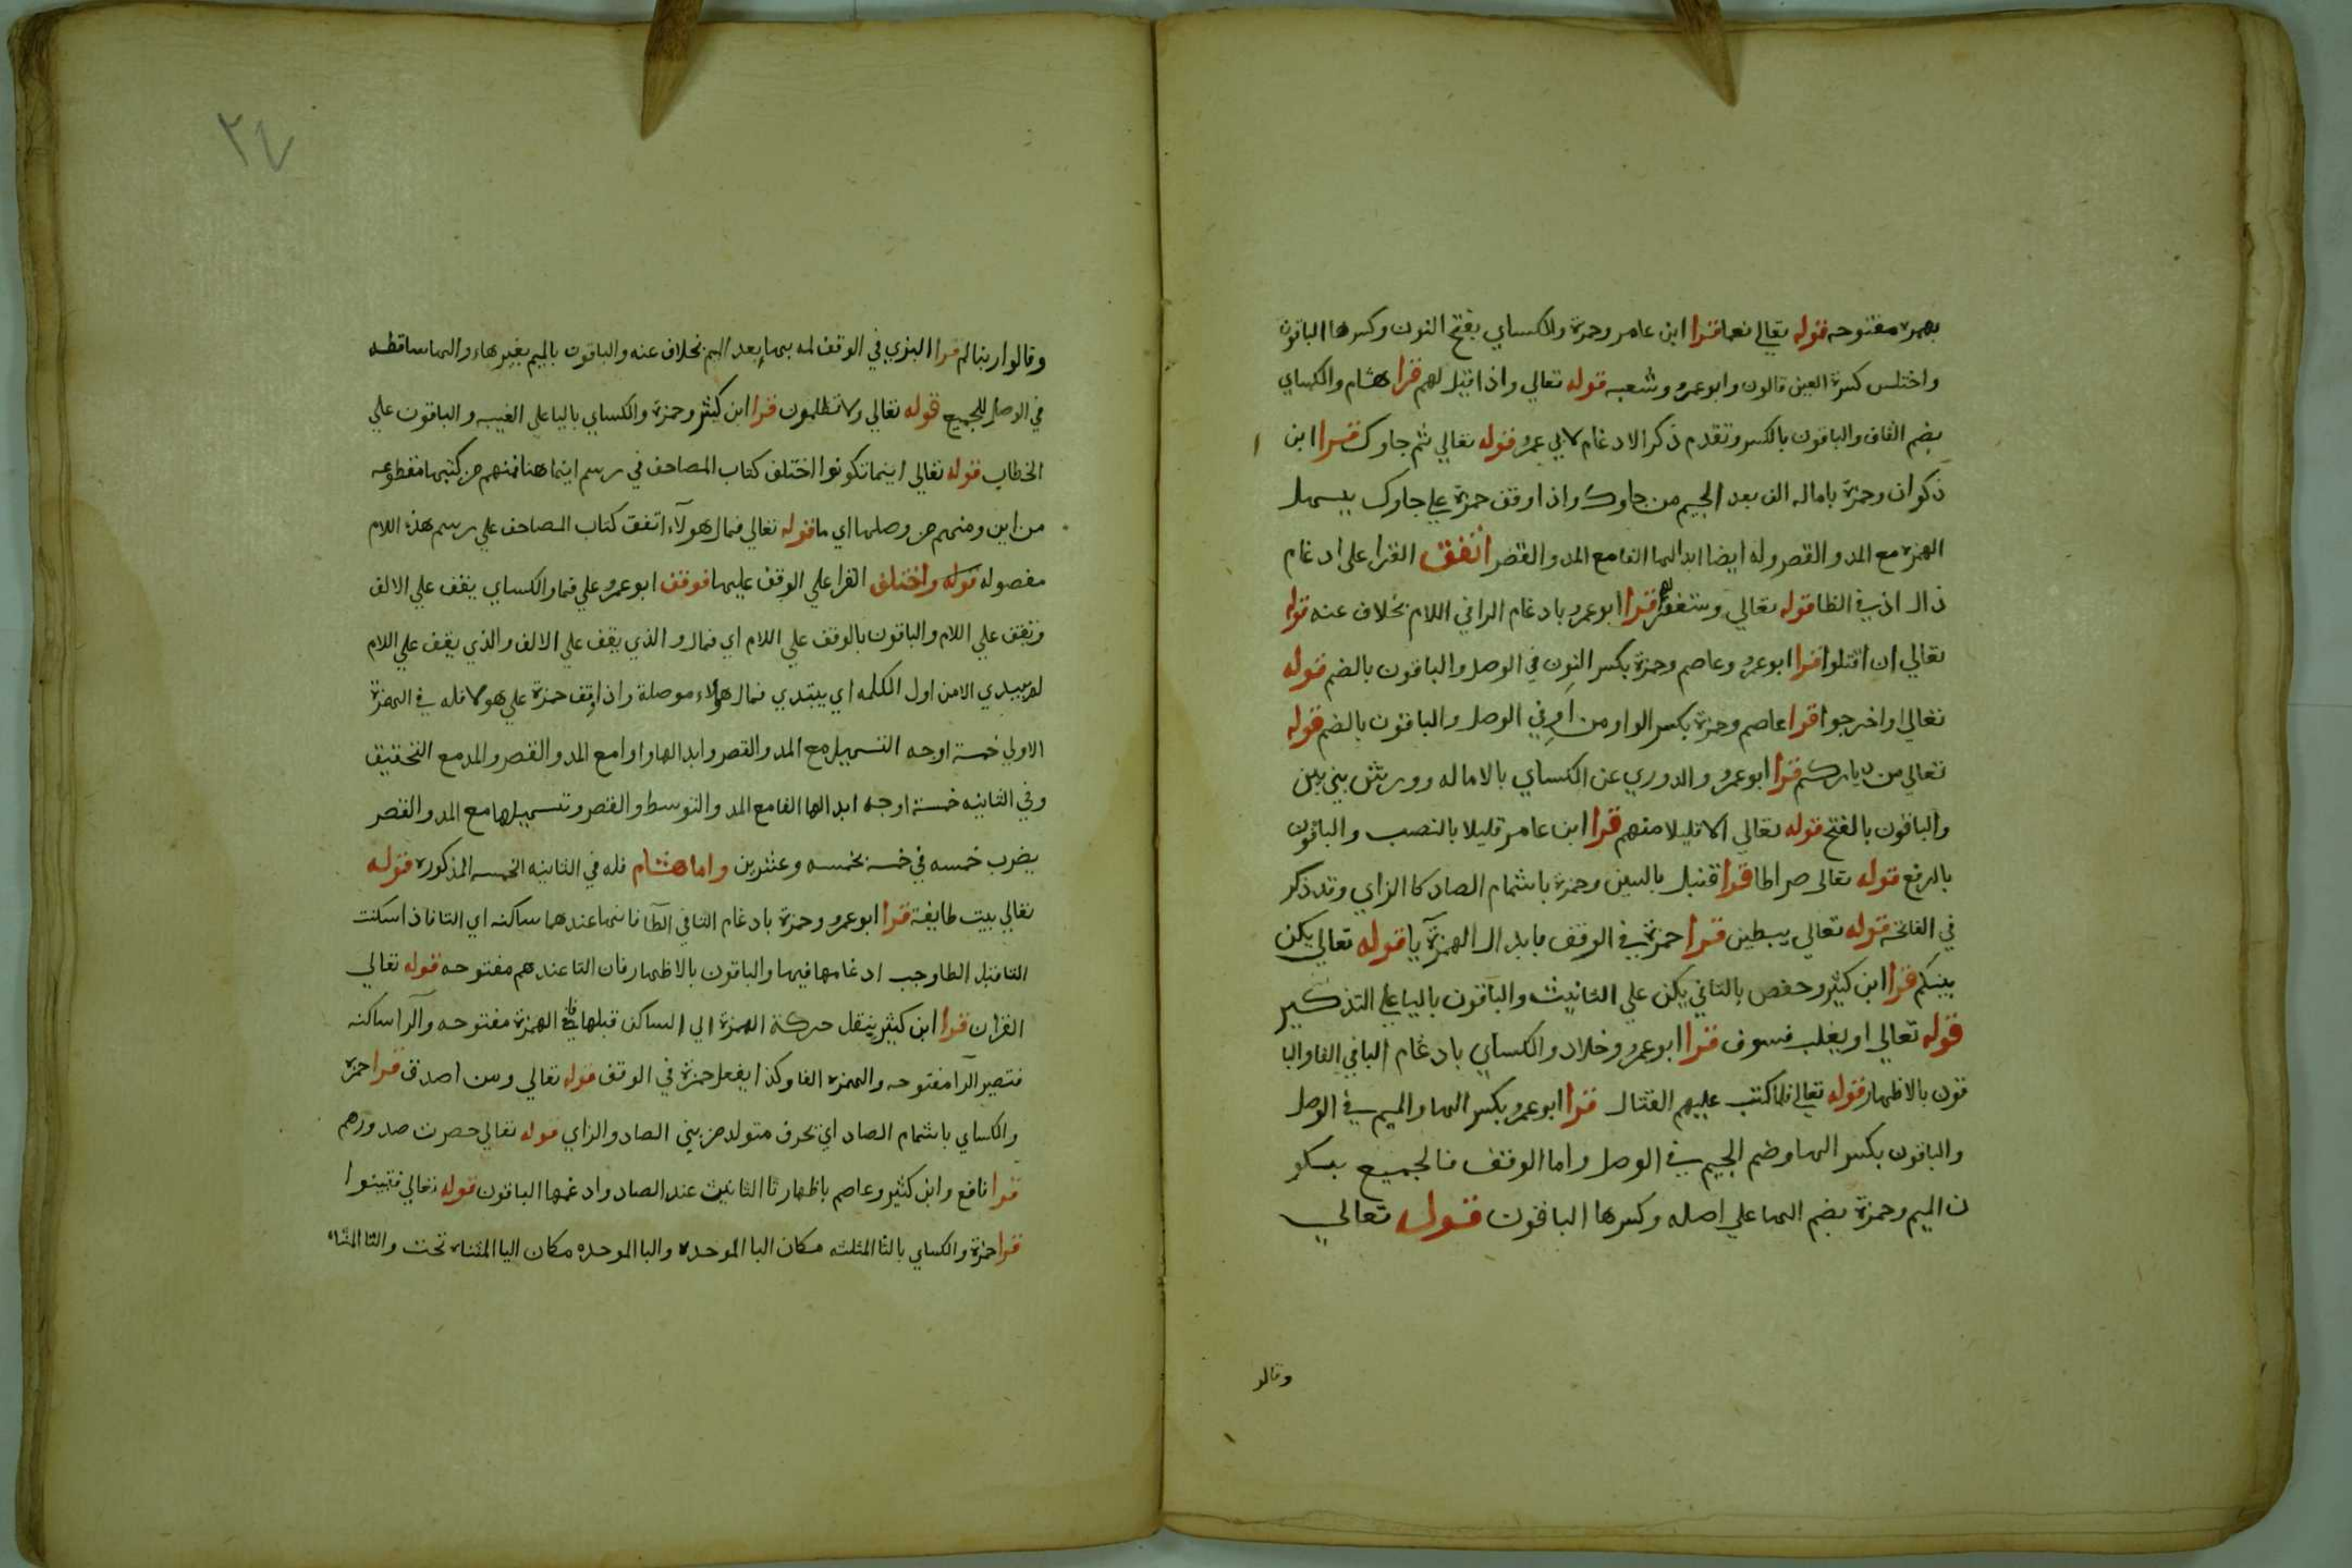 بهمزه مفتوحه قوله تعالي نعما قرا ابن عامر وحمزة والكساي بفتح النون وكسرها الباقون
واختلس كسرة العين قالون وابوعمرو وشعبه قوله تعالي واذا قيل لهم قرا هشام والكساي
بضم القاف والباقون بالكسر وتقدم ذكر الادغام لابي عمرو قوله تعالي ثم جاوك قرا ابن
ذكوان وحمزة باماله الف بعد الجيم من جاوك واذا وقف حمزة علي جاوك يسهل
الهمزه مع المد والقصر وله ايضا ابدالها الفا مع المد والقصر اتفق القرا على ادغام
ذال اذ في الظا قوله تعالي وستغفر لهم قرا ابوعمرو بادغام الرا في اللام بخلاف عنه قوله
تعالي ان اقتلوا قرا ابوعمرو وعاصم وحمزة بكسر النون في الوصل والباقون بالضم قوله
تعالي او اخرجوا قرا عاصم وحمزة بكسر الواو من او في الوصل والباقون بالضم قوله
تعالي من دياركم قرا ابوعمرو والدوري عن الكساي بالاماله وورش بين بين
والباقون بالفتح قوله تعالي الا قليلا منهم قرا ابن عامر قليلا بالنصب والباقون
بالرفع قوله تعالى صراطا قرا قنبل بالسين وحمزة باشمام الصاد كالزاي وقد ذكر
في الفاتحة قوله تعالي يبطين قرا حمزة في الوقف بابدال الهمزة يا قوله تعالي يكن
بينكم قرا ابن كثير وحفص بالتا في يكن علي التانيث والباقون باليا علي التذكير
قوله تعالي او يغلب فسوف قرا ابوعمرو وخلاد والكساي بادغام البا في الفا والبا
قون بالاظهار قوله تعالي فلما كتب عليهم القتال قرا ابوعمرو بكسر الها والميم في الوصل
والباقون بكسر الها وضم الجيم في الوصل واما الوقف فالجميع بسكو
ن الميم وحمزة بضم الها علي اصله وكسرها الباقون قوله تعالي
وقالو
٢٤
وقالوا ربنا لم قرا البزي في الوقف لمه بها بعد الميم بخلاف عنه والباقون بالميم بغير هاء والها ساقطه
في الوصل للجميع قوله تعالي ولا تظلمون قرا ابن كثير وحمزة والكساي باليا علي الغيب والباقون علي
الخطاب قوله تعالي اينما تكونوا اختلف كتاب المصاحف في رسم اينما هنا فمنهم من كتبها مقطوعه
من اين ومنهم من وصلها اي ما قوله تعالي فمال هولآء اتفق كتاب المصاحف علي رسم هذه اللام
مفصوله قوله واختلف القرا علي الوقف عليها فوقف ابوعمرو علي فما والكساي يقف علي الالف
ونقف علي اللام والباقون بالوقف علي اللام اي فمال و الذي يقف علي الالف والذي يقف علي اللام
لم يبتدي الا من اول الكلمه اي يبتدي فمال هولاء موصلة واذا وقف حمزة علي هولا فله في الهمزة
الاولي خمسة اوجه التسهيل مع المد والقصر وابدالها واوا مع المد والقصر والمد مع التحقيق
وفي الثانيه خمسة اوجه ابدالها الفا مع المد والتوسط والقصر وتسهيلها مع المد والقصر
يضرب خمسه في خمسه بخمسه وعشرين واما هشام فله في الثانيه الخمسه المذكوره قوله
تعالي بيت طايفة قرا ابوعمرو وحمزة بادغام التا في الطآ فانها عندهما ساكنه اي التا فاذا سكنت
التا قبل الطا وجب ادغامها فيها والباقون بالاظهار فان التا عندهم مفتوحه قوله تعالي
القران قرا ابن كثير بنقل حركة الهمزة الي الساكن قبلها فان الهمزة مفتوحه والرآ ساكنه
فتصير الرآ مفتوحه والهمزه الفا وكذا يفعل حمزة في الوقف قوله تعالي ومن اصدق قرا حمزه
والكساي باشمام الصاد اي بحرف متولد من بين الصاد والزاي قوله تعالي حصرت صدورهم
قرا نافع وابن كثير وعاصم باظهار تا التانيث عند الصاد وادغمها الباقون قوله تعالي فتبينوا
قرا حمزة والكساي بالثا المثلثه مكان البا الموحده والبا الموحده مكان اليا المثناه تحت والتا المثناه